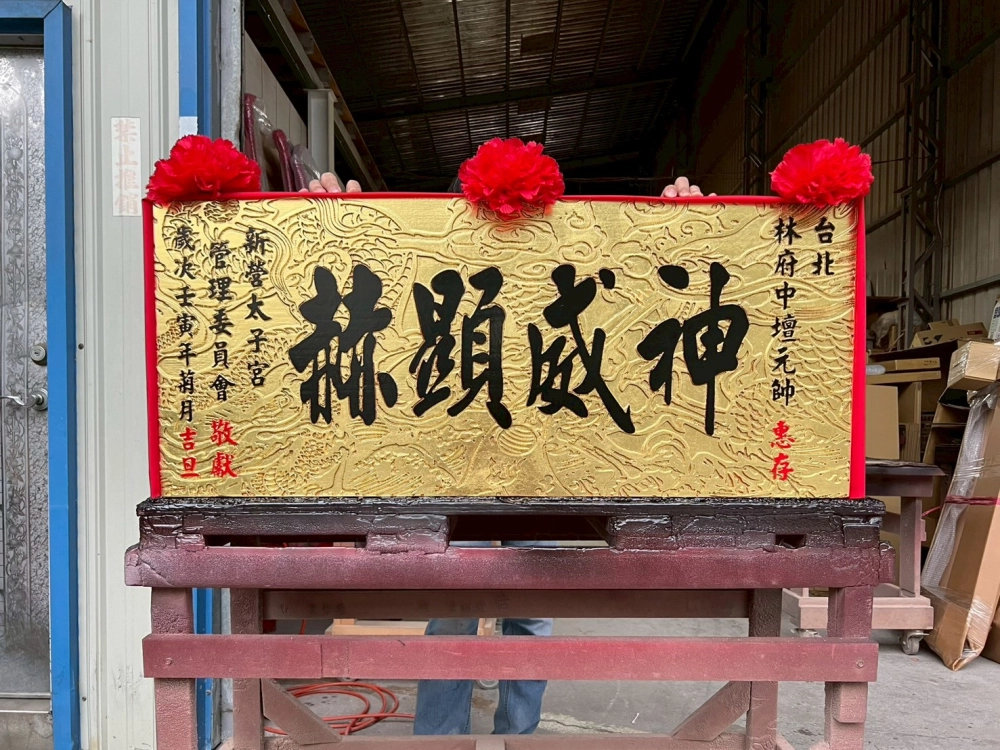 台北
林府中壇元帥 惠存
神威顯赫
新營太子宮
管理委員會 敬獻
歲次壬寅年菊月吉旦
禁止推銷